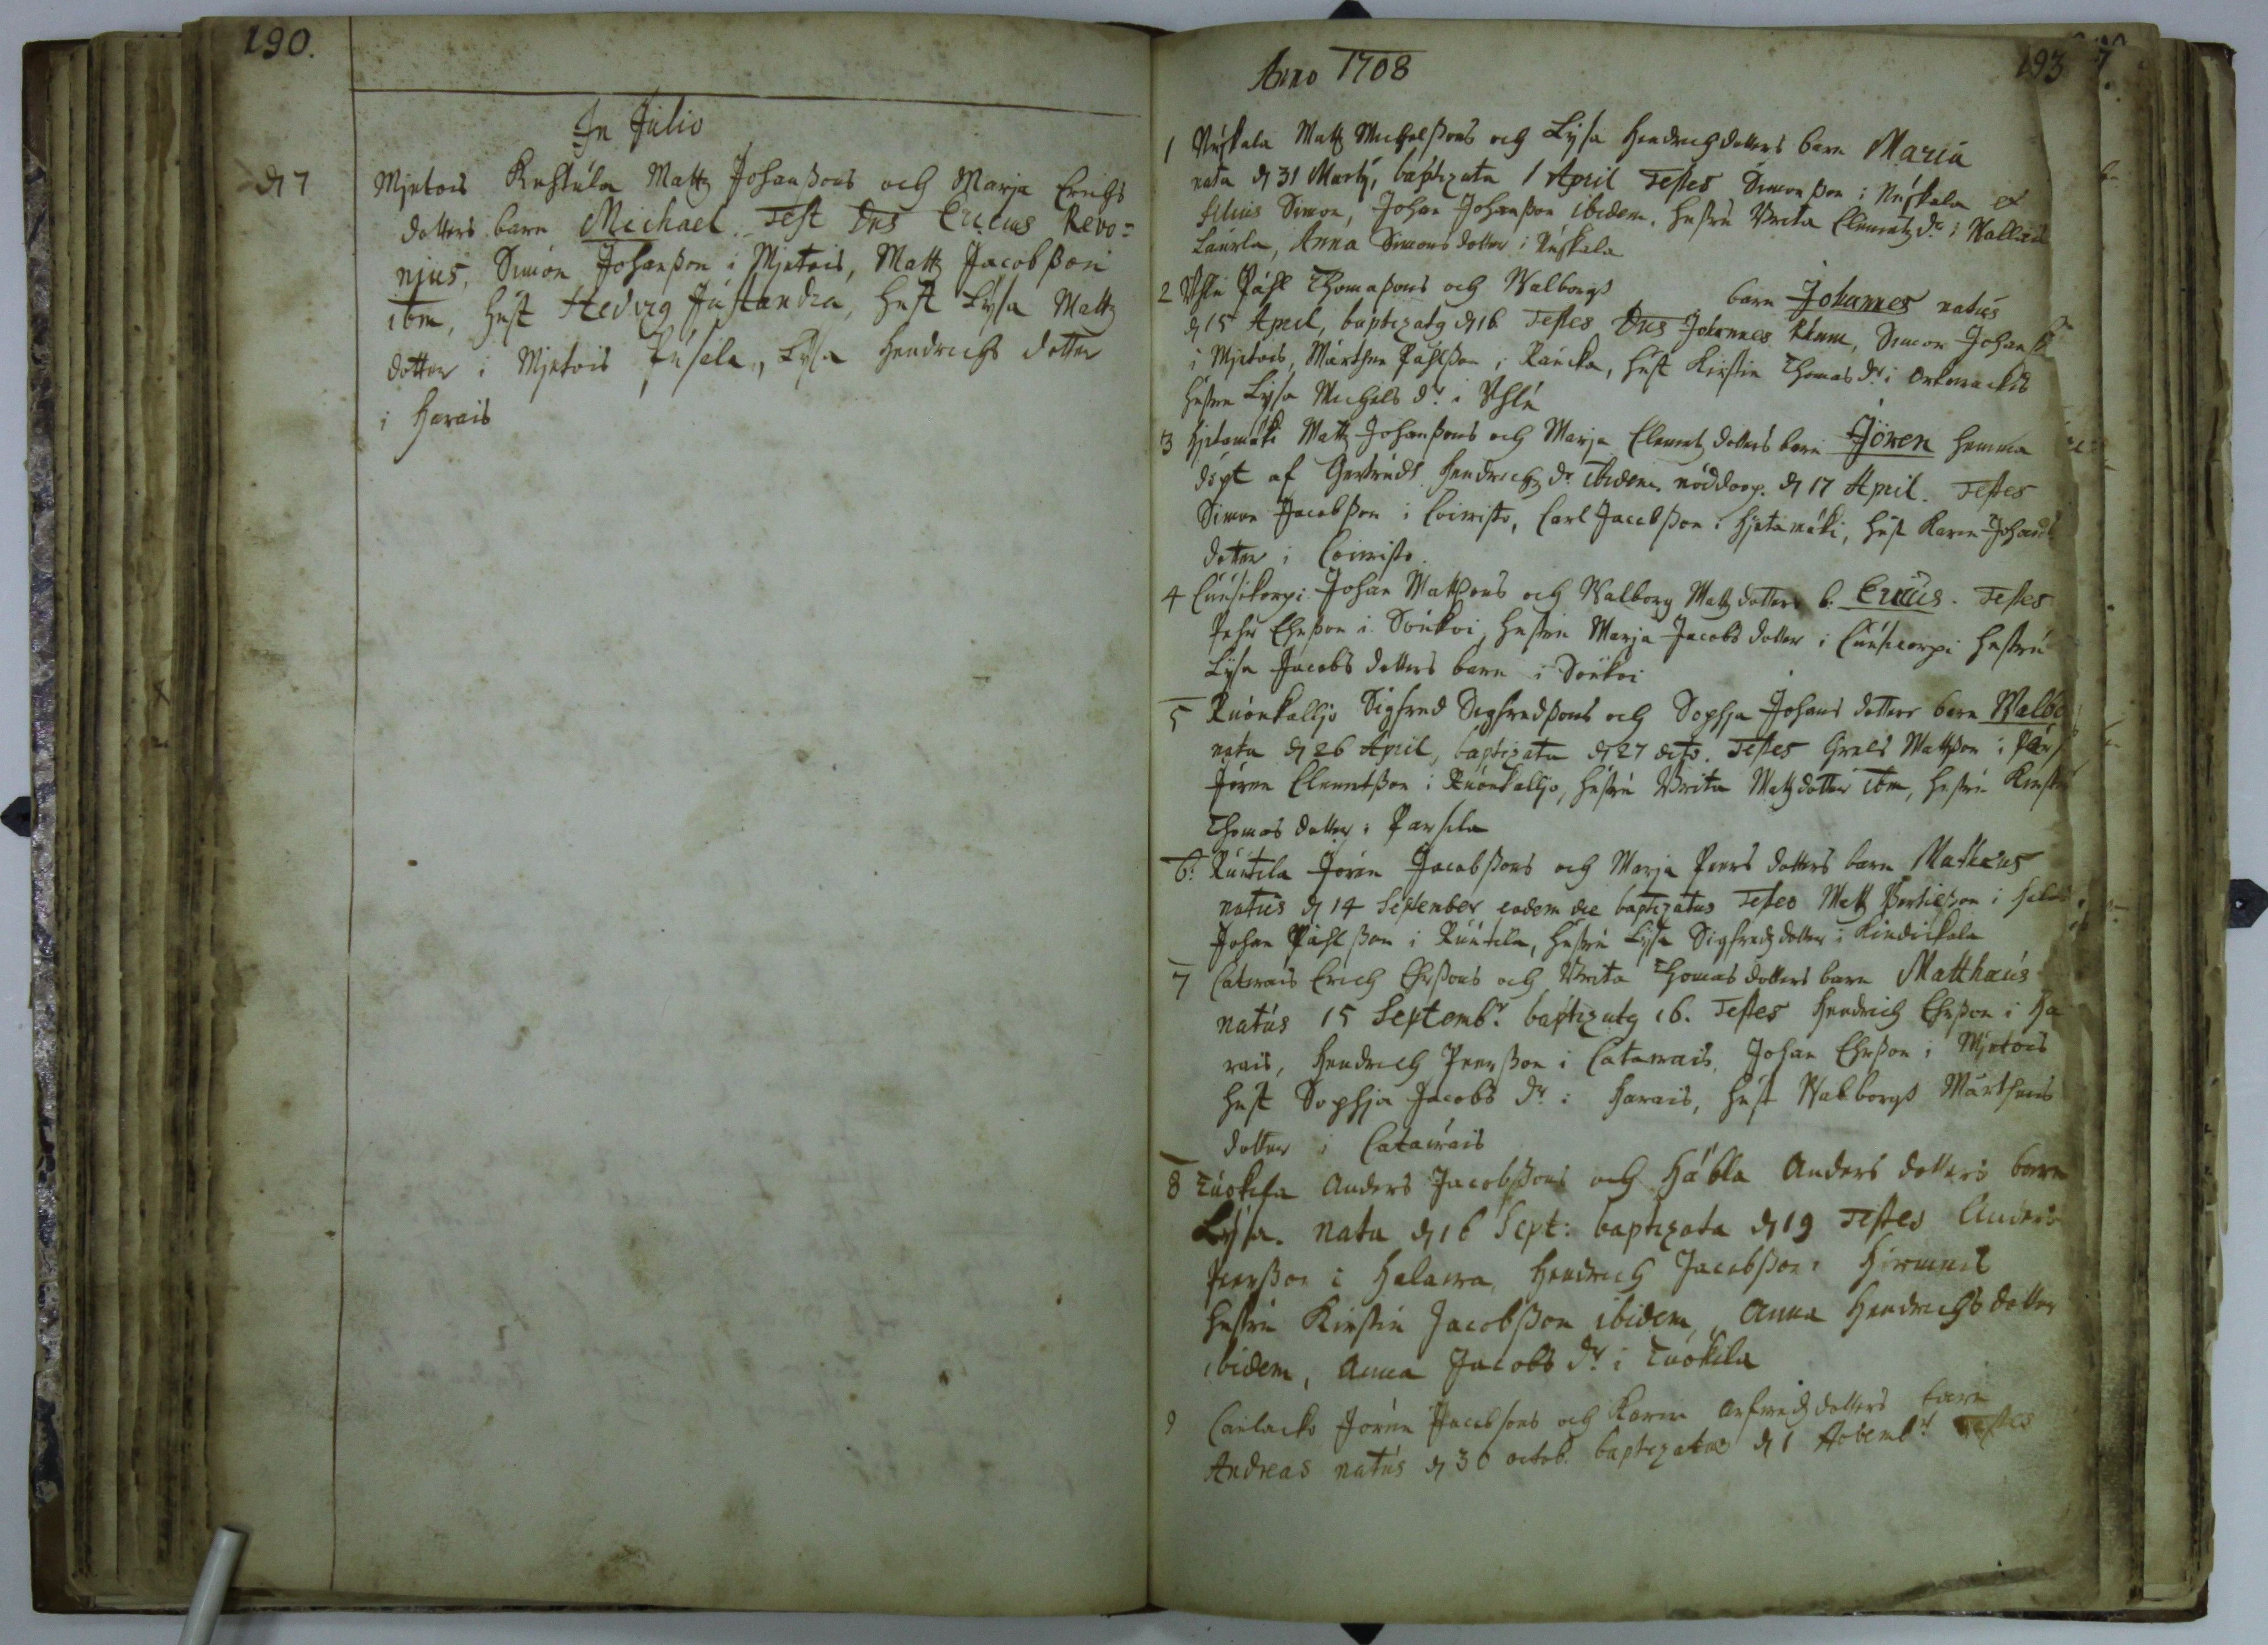 190.
In Julio
d 7 Mjetois Kestula Matz Johanßons och Marja Erichs
dotters barn Michael. Test Dns Ericus Revo=
nius, Simon Johanßon i Mjetois, Matz Jacobßon
ibm, Hust Hedvig Justandra, Hust Lysa Matz
dotter i Mjetois Pusila, Lysa Hendrichs dotter
i Harais
Anno 1708
193
1 Nuskala Matz Michelßons och Lysa Hendrichdotters barn Maria
nata d 31 Martÿ, baptizata 1 April Testes Simonßon i Nuskala et
filius Simon, Johan Johanßon ibidem, hustru Brita Clemetz dr i
Laurla, Anna Simonsdotter i Nuskala
2 Uhlu Påhl Thomaßons och Walborgs barn Johannes natus
d 15 April, baptizatg d 16 Testes Dns Johannes, Simon Johanß
i Mjetois, Mårthen Påhlßon i Raucka, hust Kirstin Thomas dr i
hustru Lysa Michels dr i Uhlu
3 Hjetamäki Matz Johanßons och Marja Clemetz dotters barn Jören hemma
döpt af Gertrudt Hendrichz dr ibidem, nöddop. d 17 April. Testes
Simon Jacobßon i Coivisto, Carl Jacobßon i Hjetamäki, hust Karin Johans
dotter i Coivisto.
4 Cuusikorpi Johan Matßons och Walborg Matz dotters b. Ericus. Testes
Pehr Ehrßon i Soukoi, hustru Marja Jacobs dotter i Cuusicorpi hustru
Lysa Jacobs dotters barn i Soukoi
5 Ruonkalljo Sigfred Sigfredßons och Sophja Johans dotters barn Walbo
nata d 26 April, baptizata d 27 dito. Testes Grels Mattßon i
Jören Clemetßon i Ruonkalljo, hustru Brita Matzdotter ibm, hustru Kirstin
Thomas dotter i Parsila
6. Ruutila Jören Jacobßons och Marja Peers dotters barn Mattheus
natus d 14 September eodem die baptizatus Testes Matz Bertilßon i
Johan Påhlßon i Ruutila, hustru Lysa Sigfredz dotter i Kindickala
7 Catarais Erich Ehrßons och Brita Thomas dotters barn Matthæus
natus 15 Septembr. baptizatg 16. Testes Hendrich Ehrßon i Ha
rais, Hendrich Peerßon i Catarais, Johan Ehrßon i Mjetois
hust Sophja Jacobs dr i Harais, hust Walborgs Mårthens
dotter i Catarais
8 Tuokila Anders Jacobßons och Häbla Anders dotters barn
Lysa. nata d 16 Sept: baptizata d 19 Testes Anders
Peerßon i Halawa, Hendrich Jacobßon i
hustru Kirstin Jacobßon ibidem, Anna Hendrichsdotter
ibidem, Anna Jacobs dr i Tuokila
9 Cailacko Jören Jacobsons och Karin dotters barn
Andreas natus d 30 octob. baptizatus d 1 Novembr Testes